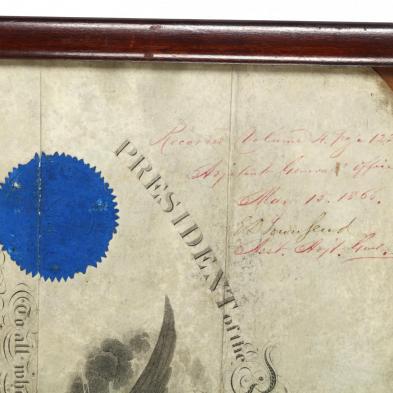 Recorded Volume 4. Page 122
Adjutant General's Office
Mar. 13. 1866.
E D Townsend
Asst. Adjt. Genl.
PRESIDENT of the
To all who